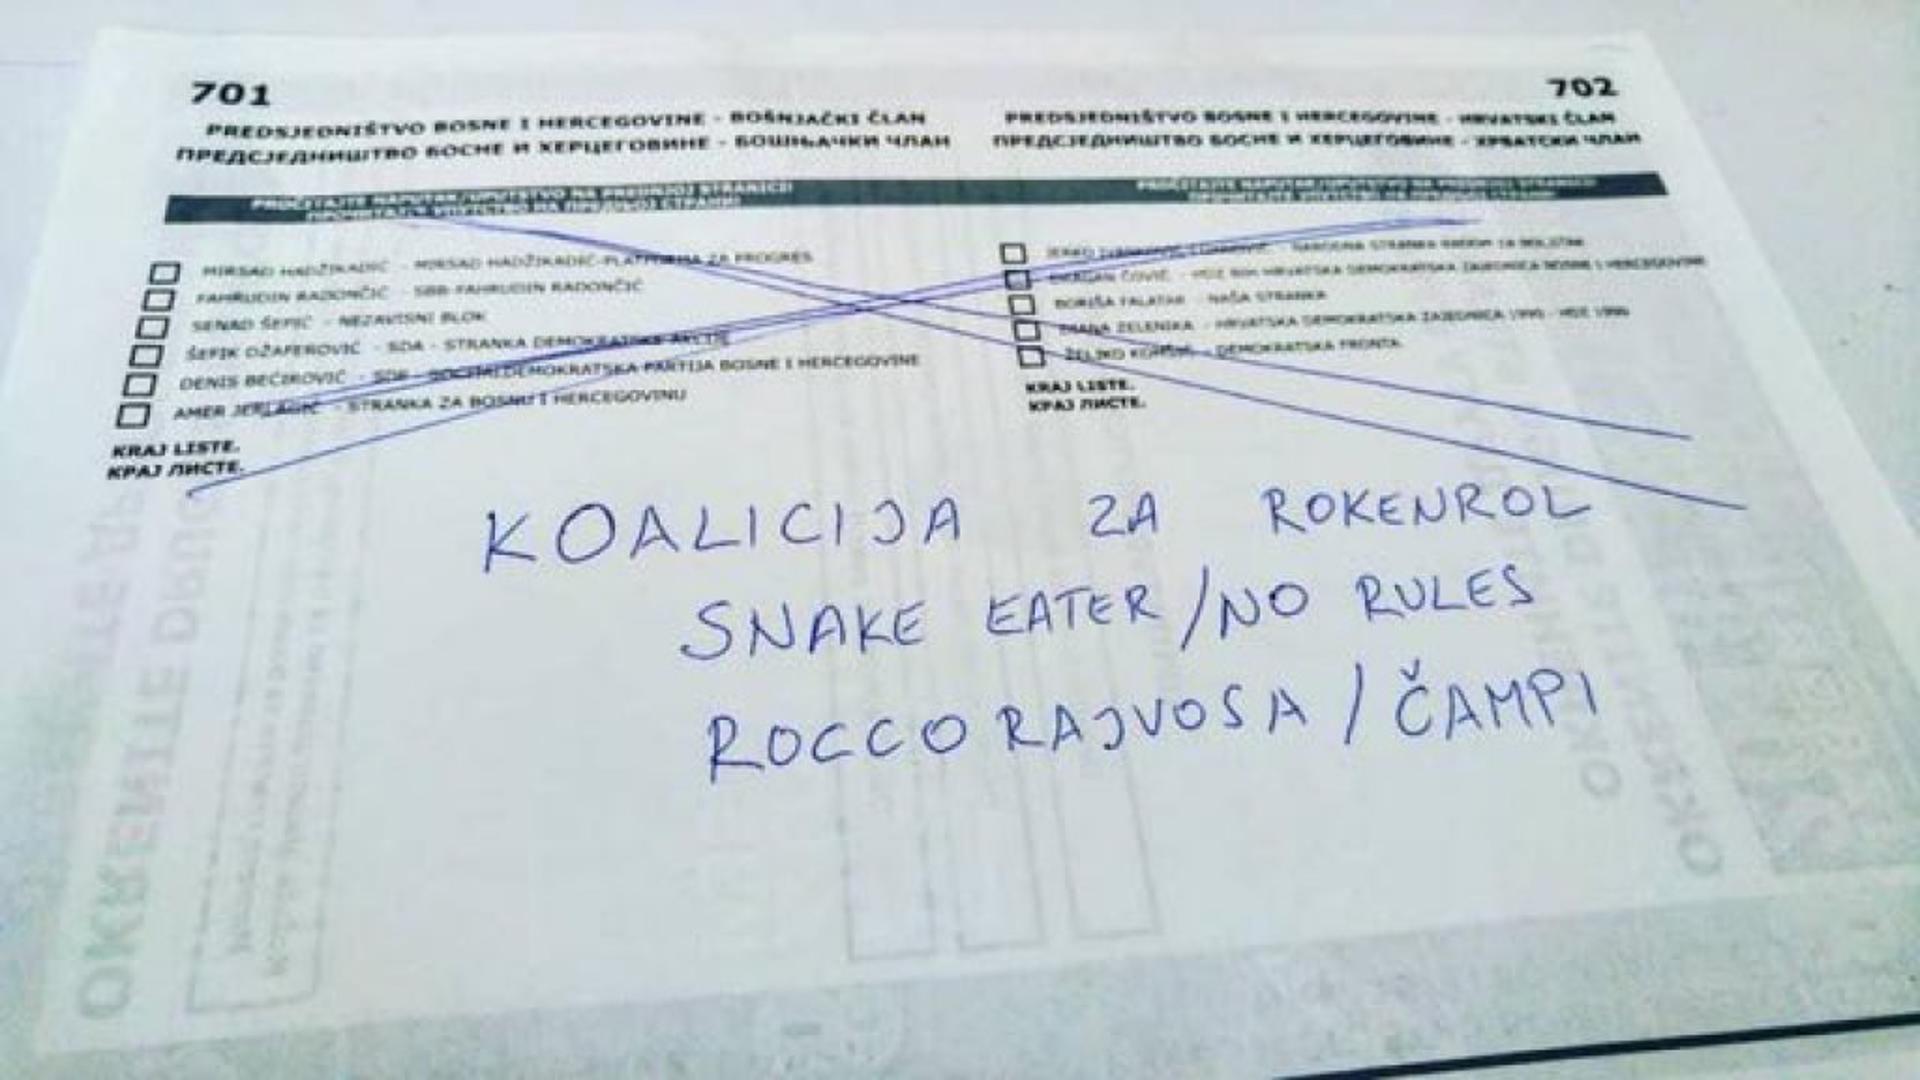 701
PREDSJEDNIŠTVO BOSNE I HERCEGOVINE - BOŠNJAČKI ČLAN
ПРЕДСЈЕДНИШТВО БОСНЕ И ХЕРЦЕГОВИНЕ - БОШЊАЧКИ ЧЛАН
PROČITAJTE NAPUTAK/UPUTSTVO NA PREDNJOJ STRANICI!
ПРОЧИТАЈТЕ УПУТСТВО НА ПРЕДЊОЈ СТРАНИ!
MIRSAD HADŽIKADIĆ - MIRSAD HADŽIKADIĆ-PLATFORMA ZA PROGRES
FAHRUDIN RADONČIĆ - SBB-FAHRUDIN RADONČIĆ
SENAD ŠEPIĆ - NEZAVISNI BLOK
ŠEFIK DŽAFEROVIĆ - SDA - STRANKA DEMOKRATSKE AKCIJE
DENIS BEĆIROVIĆ - SDP - SOCIJALDEMOKRATSKA PARTIJA BOSNE I HERCEGOVINE
AMER JERLAGIĆ - STRANKA ZA BOSNU I HERCEGOVINU
KRAJ LISTE.
КРАЈ ЛИСТЕ.
702
PREDSJEDNIŠTVO BOSNE I HERCEGOVINE - HRVATSKI ČLAN
ПРЕДСЈЕДНИШТВО БОСНЕ И ХЕРЦЕГОВИНЕ - ХРВАТСКИ ЧЛАН
PROČITAJTE NAPUTAK/UPUTSTVO NA PREDNJOJ STRANICI!
ПРОЧИТАЈТЕ УПУТСТВО НА ПРЕДЊОЈ СТРАНИ!
JERKO IVANKOVIĆ - NARODNA STRANKA RADOM ZA BOLJITAK
DRAGAN ČOVIĆ - HDZ BIH HRVATSKA DEMOKRATSKA ZAJEDNICA BOSNE I HERCEGOVINE
BORIŠA FALATAR - NAŠA STRANKA
DIANA ZELENIKA - HRVATSKA DEMOKRATSKA ZAJEDNICA 1990 - HDZ 1990
ŽELJKO KOMŠIĆ - DEMOKRATSKA FRONTA
KRAJ LISTE.
КРАЈ ЛИСТЕ.
KOALICIJA ZA ROKENROL
SNAKE EATER / NO RULES
ROCCO RAJVOSA / ČAMPI
OKRENITE